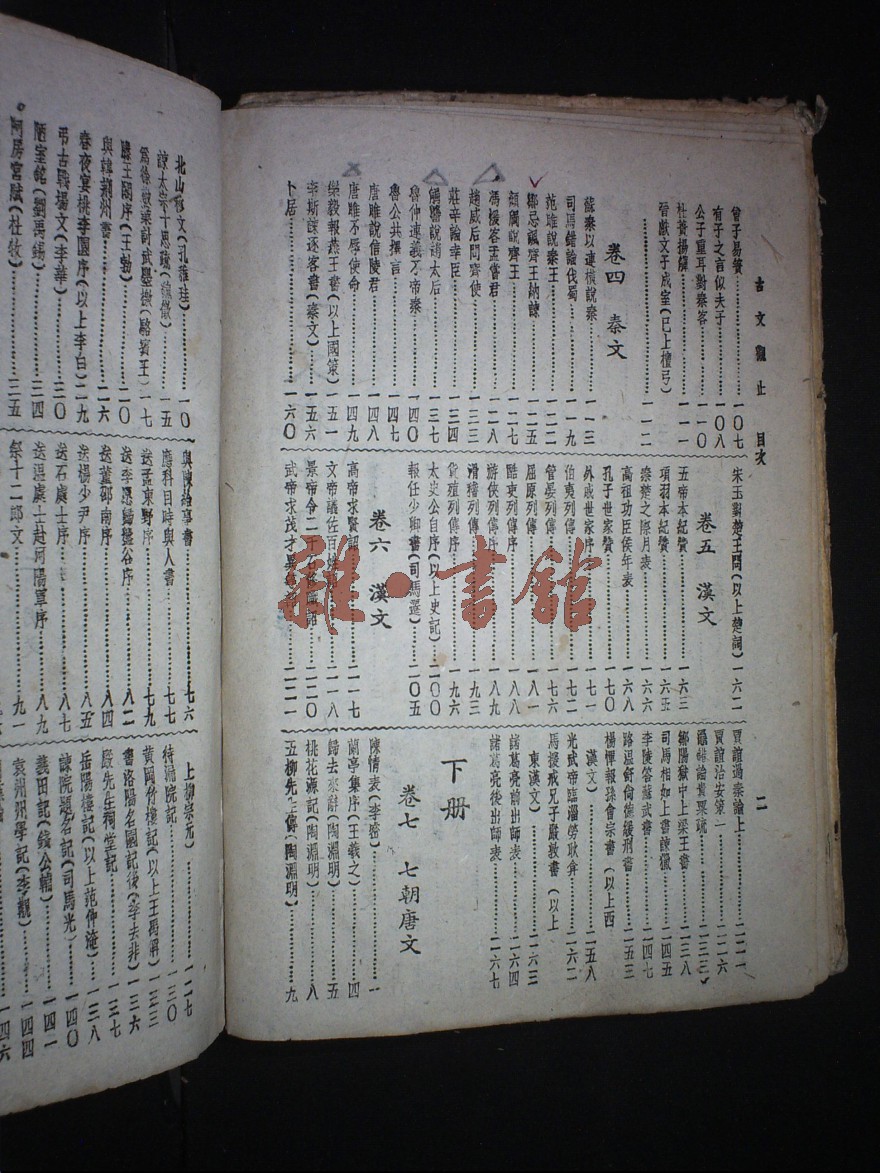 古文觀止 目次
二
曾子易簀……一〇七
有子之言似夫子……一〇八
公子重耳對秦客……一一〇
杜蕢揚觶……一一一
晉獻文子成室(已上檀弓)……一一二
卷四 秦文
蘇秦以連橫說秦……一一三
司馬錯論伐蜀……一一九
范雎說秦王……一二二
鄒忌諷齊王納諫……一二五
顏斶說齊王……一二七
馮煖客孟嘗君……一二八
趙威后問齊使……一三三
莊辛論幸臣……一三四
觸讋說趙太后……一三七
魯仲連義不帝秦……一四〇
魯公共擇言……一四七
唐雎說信陵君……一四八
唐雎不辱使命……一四九
樂毅報燕王書(以上國策)……一五一
李斯諫逐客書(秦文)……一五六
卜居……一六〇
宋玉對楚王問(以上楚詞)一六二
卷五 漢文
五帝本紀贊……一六三
項羽本紀贊……一六五
秦楚之際月表……一六六
高祖功臣侯年表……一六八
孔子世家贊……一七〇
外戚世家序……一七一
伯夷列傳……一七二
管晏列傳……一七六
屈原列傳……一八一
酷吏列傳序……一八八
游俠列傳序……一八九
滑稽列傳……一九三
貨殖列傳序……一九六
太史公自序(以上史記)…二〇〇
報任少卿書(司馬遷)……二〇五
卷六 漢文
高帝求賢詔……二一七
文帝議佐百姓……二一八
景帝令二千石……詔……二二〇
武帝求茂才異……二二一
賈誼過秦論上……二二一
賈誼治安策一……二二六
鼂錯論貴粟疏……(二三三)
鄒陽獄中上梁王書……二三八
司馬相如上書諫獵……二四五
李陵答蘇武書……二四七
路溫舒尙德緩刑書……二五三
楊惲報孫會宗書(以上西
漢文)……二五八
光武帝臨淄勞耿弇……二六二
馬援戒兄子嚴敦書(以上
東漢文)……二六三
諸葛亮前出師表……二六四
諸葛亮後出師表……二六七
下册
卷七 七朝唐文
陳情表(李密)……一
蘭亭集序(王羲之)……四
歸去來辭(陶淵明)……五
桃花源記(陶淵明)……八
五柳先生傳(陶淵明)……九
北山移文(孔稚珪)……一〇
諫太宗十思疏(魏徵)……一五
爲徐敬業討武曌檄(駱賓王)一七
滕王閣序(王勃)……二〇
與韓荆州書……二六
春夜宴桃李園序(以上李白)二九
弔古戰場文(李華)……三〇
陋室銘(劉禹錫)……三四
阿房宮賦(杜牧)……三五
與陳給事書……七六
應科目時與人書……七七
送孟東野序……七九
送李愿歸盤谷序……八二
送董邵南序……八四
送楊少尹序……八五
送石處士序……八七
送温處士赴河陽軍序……八九
祭十二郎文……九一
上柳宗元)……一二七
待漏院記……一三〇
黃岡竹樓記(以上王禹偁)一三三
書洛陽名園記後(李去非)一三六
嚴先生祠堂記……一三七
岳陽樓記(以上范仲淹)一三八
諫院題名記(司馬光)……一四〇
義田記(錢公輔)……一四一
袁州州學記(李覯)……一四四
一四六
雜·書館